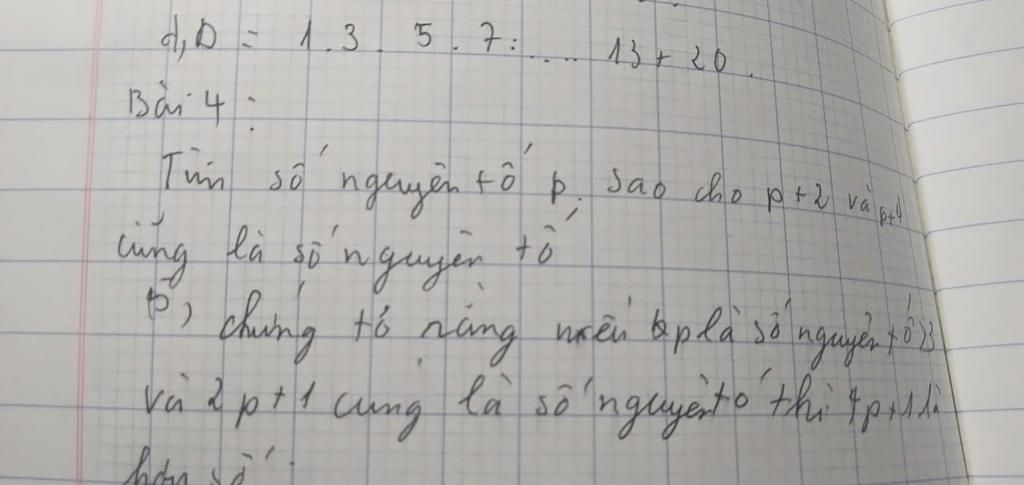 d, D = 1.3.5.7:.... 13 + 20.
Bài 4:
Tìm số nguyên tố p. sao cho p+2 và p+4
cũng là số nguyên tố
b) chứng tỏ rằng nếu p là số nguyên tố >3
và 2p+1 cũng là số nguyên tố thì 4p+1 là
hợp số.